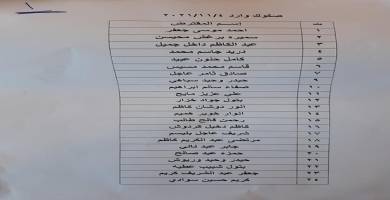 ١
صكوك وارد ٢٠٢١/١١/٤
ت اسم المقترض
١ احمد موسى جعفر
٢ سميره برغش محيسن
٣ عبد الكاظم داخل جميل
٤ دريد جاسم محمد
٥ كامل حنون عبيد
٦ قاسم محمد مسير
٧ صادق ثامر عاجل
٨ حيدر وحيد سباهي
١٠ صفاء سالم ابراهيم
١١ علي عزيز مايح
١٢ بتول جواد خزار
١٣ انور دوشان كاظم
١٤ انوار خوير حميد
١٥ رحمن فالح طالب
١٦ كاظم دخيل فرهود
١٧ شريف عاجل بليسم
١٨ مرتضى عبد الكريم كاظم
١٩ جابر عبد تالي
٢٠ حمزه عبد صالح
٢١ حيدر وحيد وريوش
٢٢ بتول شبيب عطيه
٢٣ جعفر عبد الشريف كريم
٢٤ كريم حسين سوادي